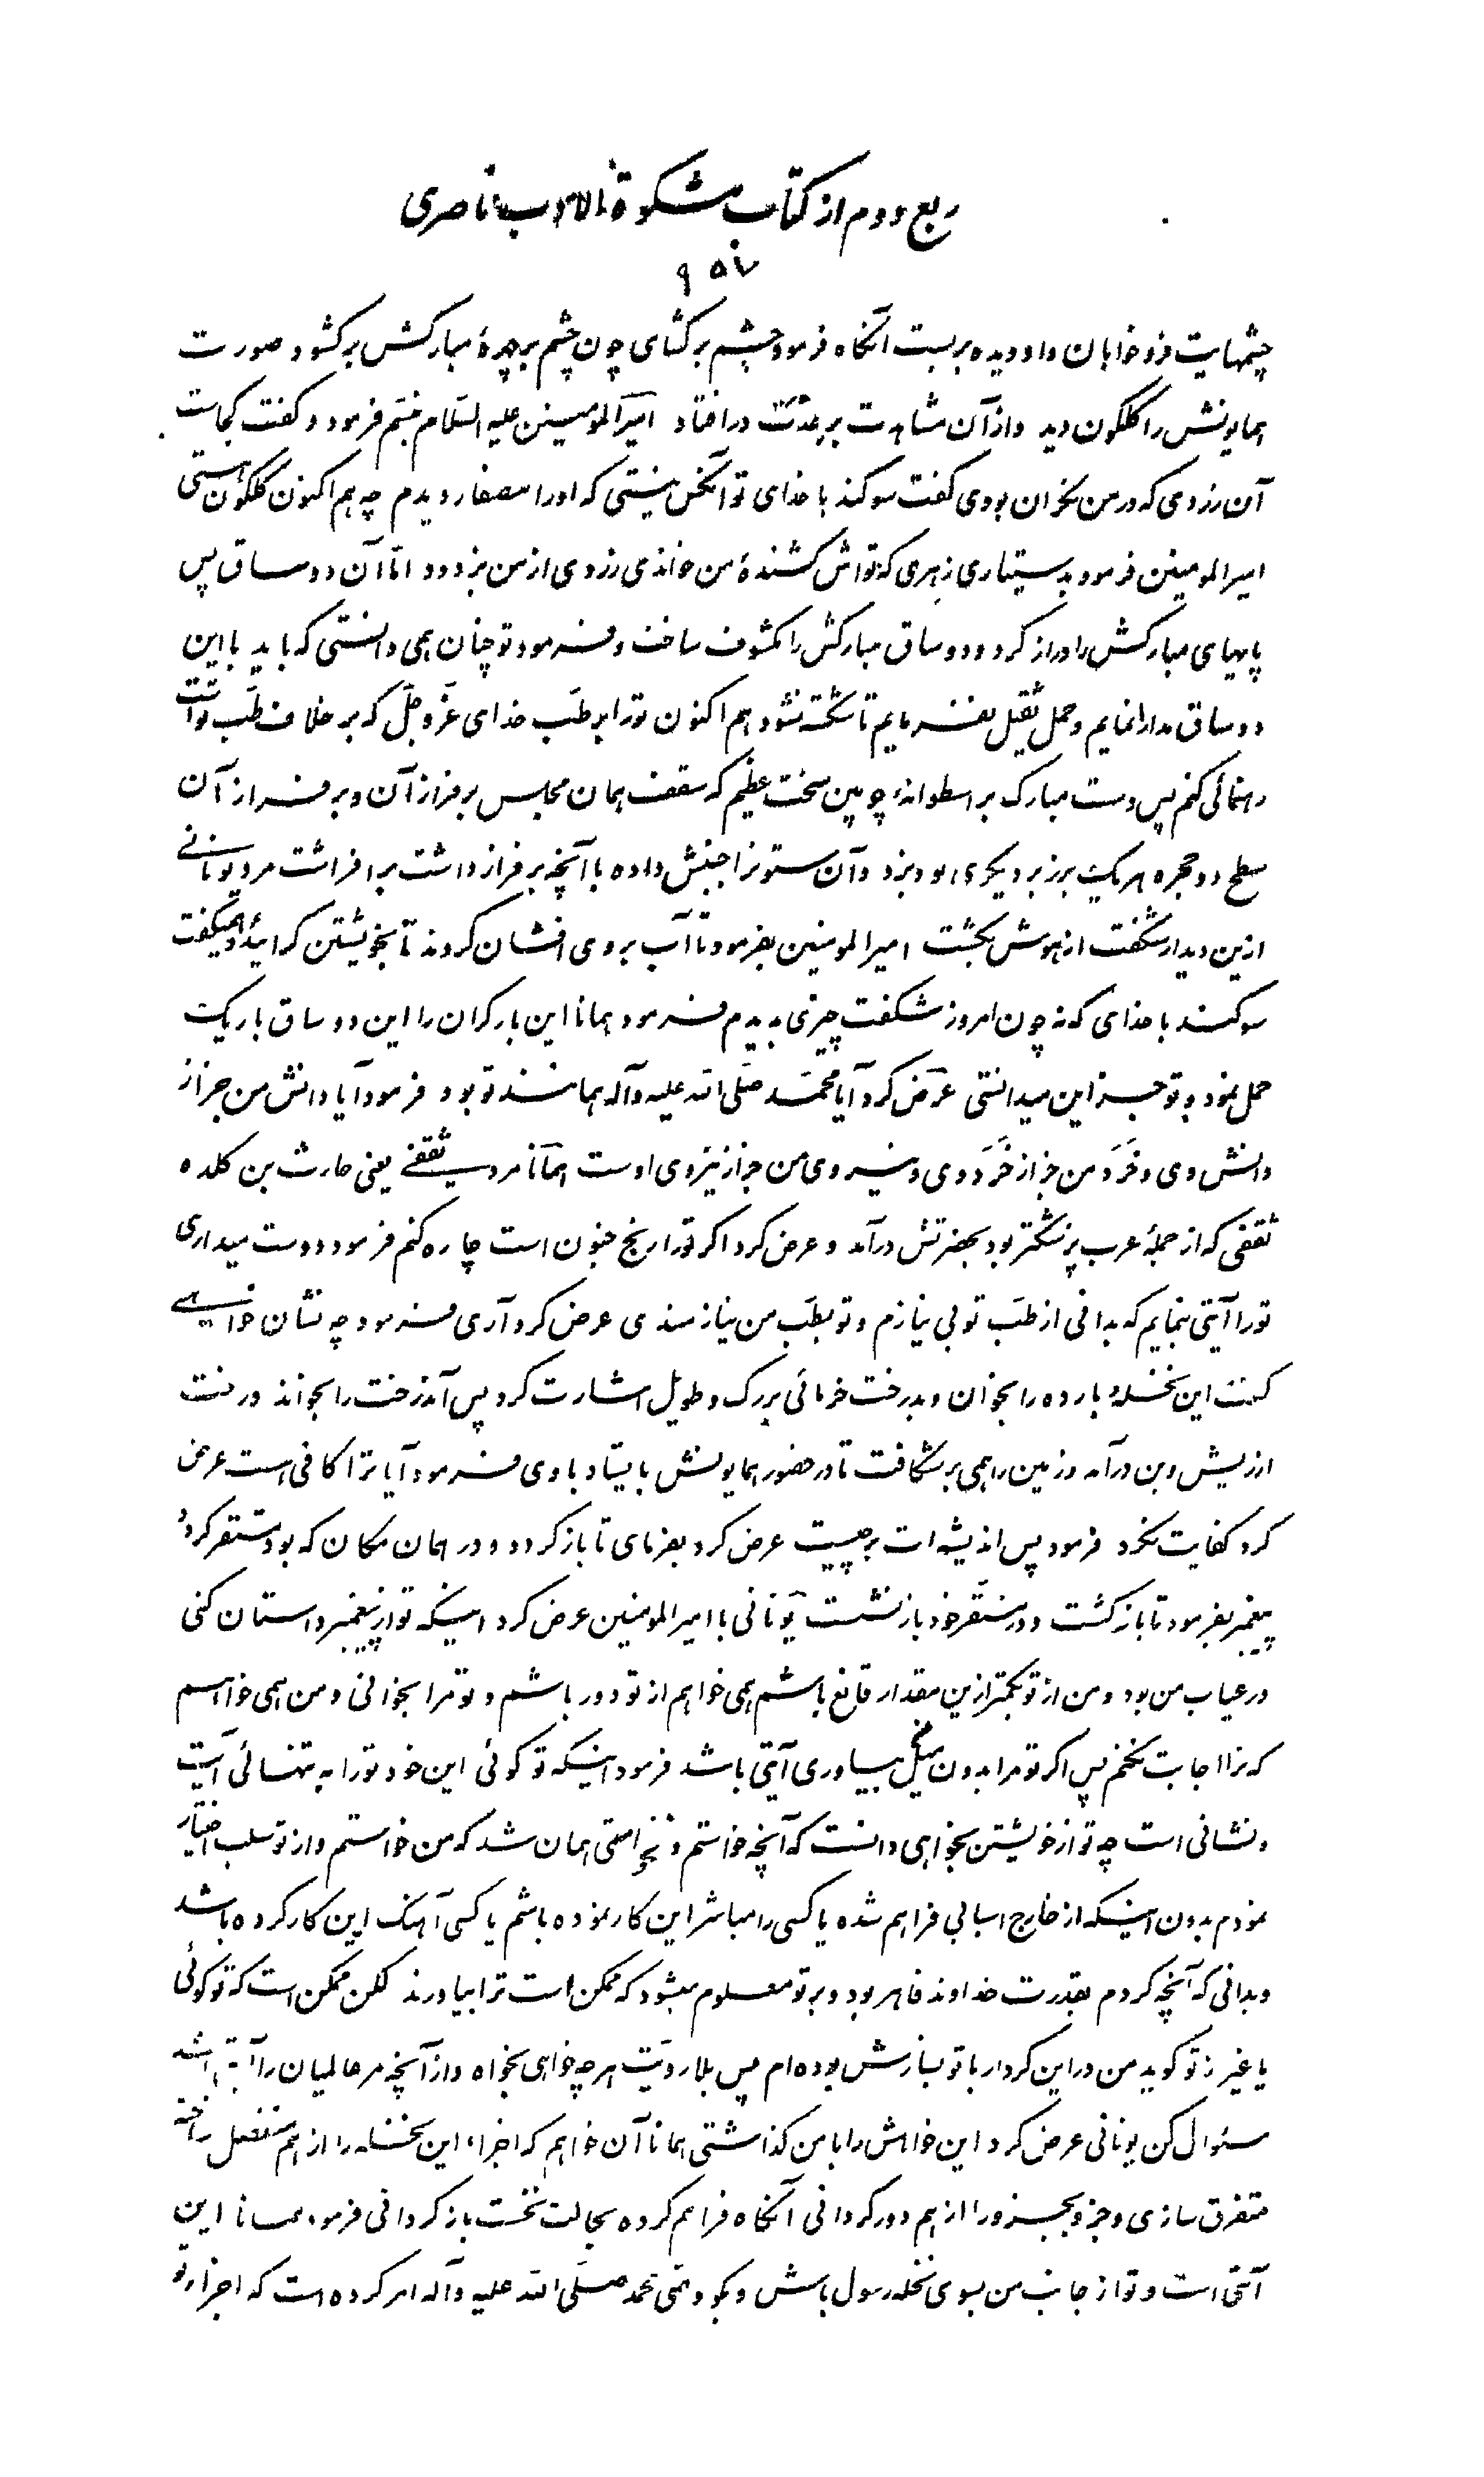 ربع دوم از کتاب مشکوة الادب ناصری
۹۵۷
چشمهایت فرو خوابان داو دیده بربست آنگاه فرمود چشم برگشای چون چشم بر چهرهٔ مبارکش برگشود صورت
همایونش را گلگون دید و از آن مشاهدت بر عدّت در افتاد امیرالمومنین علیه السّلام تبسّم فرمود و گفت کجاست
آن زردی که در من نگران بودی گفت سوگند با خدای تو آنکس نیستی که او را مصفار دیدم چه هم اکنون گلگون هستی
امیرالمومنین فرمود بدستیاری زهری که تواش کشندهٔ من خواندی زردی از من بزدود امّا آن دو ساق پس
پاهای مبارکش را دراز کرد و دو ساق مبارکش را مکشوف ساخت و فرمود تو چنان همی دانستی که باید با این
دو ساق مدارا نمایم و حمل ثقیل نفرمایم تا شکسته نشود هم اکنون تو را بر طبّ خدای عزّوجلّ که بر خلاف طبّ تو است
رهنمائی کنم پس دست مبارک بر اسطوانهٔ چوبین سخت عظیم که سقف همان مجلس بر فراز آن و بر فراز آن
سطح دو حجره هر یک برزبر دیگری بود بزد و آن ستونرا جنبش داده با آنچه بر فراز داشت برافراشت مرد یونانی
ازین دیدار شگفت از هوش بگشت امیرالمومنین بفرمود تا آب بروی افشان کردند تا بخویشتن گرائید و همیگفت
سوگند با خدای که نه چون امروز شگفت چیزی بدیدم فرمود همانا این بار گران را این دو ساق باریک
حمل نمود و تو جز این میدانستی عرض کرد آیا محمّد صلّی الله علیه وآله همانند تو بود فرمود آیا دانش من جز از
دانش وی و خرد من جز از خرد وی و نیروی من جز از نیروی اوست همانا مردی ثقفی یعنی حارث بن کلده
ثقفی که از جملهٔ عرب پزشکتر بود بحضرتش درآمد و عرض کرد اگر تو را رنج جنون است چاره کنم فرمود دوست میداری
تو را آیتی بنمایم که بدانی از طبّ تو بی نیازم و تو بطبّ من نیازمندی عرض کرد آری فرمود چه نشان خواهی
گفت این نخلهٔ بارده را بخوان و بدرخت خرمائی بزرگ و طویل اشارت کرد پس آندرخت را بخواند درخت
از ریش و بن درآمد و زمین را همی بر شکافت تا در حضور همایونش بایستاد با وی فرمود آیا ترا کافی است عرض
کرد کفایت نکرد فرمود پس اندیشه ات بر چیست عرض کرد بفرمای تا باز گردد و در همان مکان که بود مستقر گردد
پیغمبر بفرمود تا باز گشت و در مستقر خود باز نشست یونانی با امیرالمومنین عرض کرد اینکه تو از پیغمبر داستان کنی
در غیاب من بود و من از تو بکمتر ازین مقدار قانع باشم همی خواهم از تو دور باشم و تو مرا بخوانی و من همی خواهم
که ترا اجابت نکنم پس اگر تو مرا بدون میل بیاوری آیتی باشد فرمود اینکه تو گوئی این خود تو را به تنهائی آیت
و نشانی است چه تو از خویشتن بخواهی دانست که آنچه خواستم و نخواستی همان شد که من خواستم و از تو سلب اختیار
نمودم بدون اینکه از خارج اسبابی فراهم شده یا کسی را مباشر این کار نموده باشم یا کسی آهنگ این کار کرده باشد
و بدانی که آنچه کردم بقدرت خداوند قاهر بود و بر تو معلوم میشود که ممکن است ترا بیاورند لکن ممکن است که تو گوئی
یا غیر از تو گوید من در این کردار با تو بسازش بوده ام پس بلا رویّت هر چه خواهی بخواه و از آنچه مر عالمیان را آیتی باشد
سئوال کن یونانی عرض کرد این خواهش را با من گذاشتی همانا آن خواهم که اجزاء این نخله را از هم منفصل ساخته
متفرق سازی و جزو بجزو را از هم دور گردانی آنگاه فراهم کرده بحالت نخست باز گردانی فرمود همانا این
آیتی است و تو از جانب من بسوی نخله رسول باش و بگو وصّی محمد صلّی الله علیه وآله امر کرده است که اجزاء تو